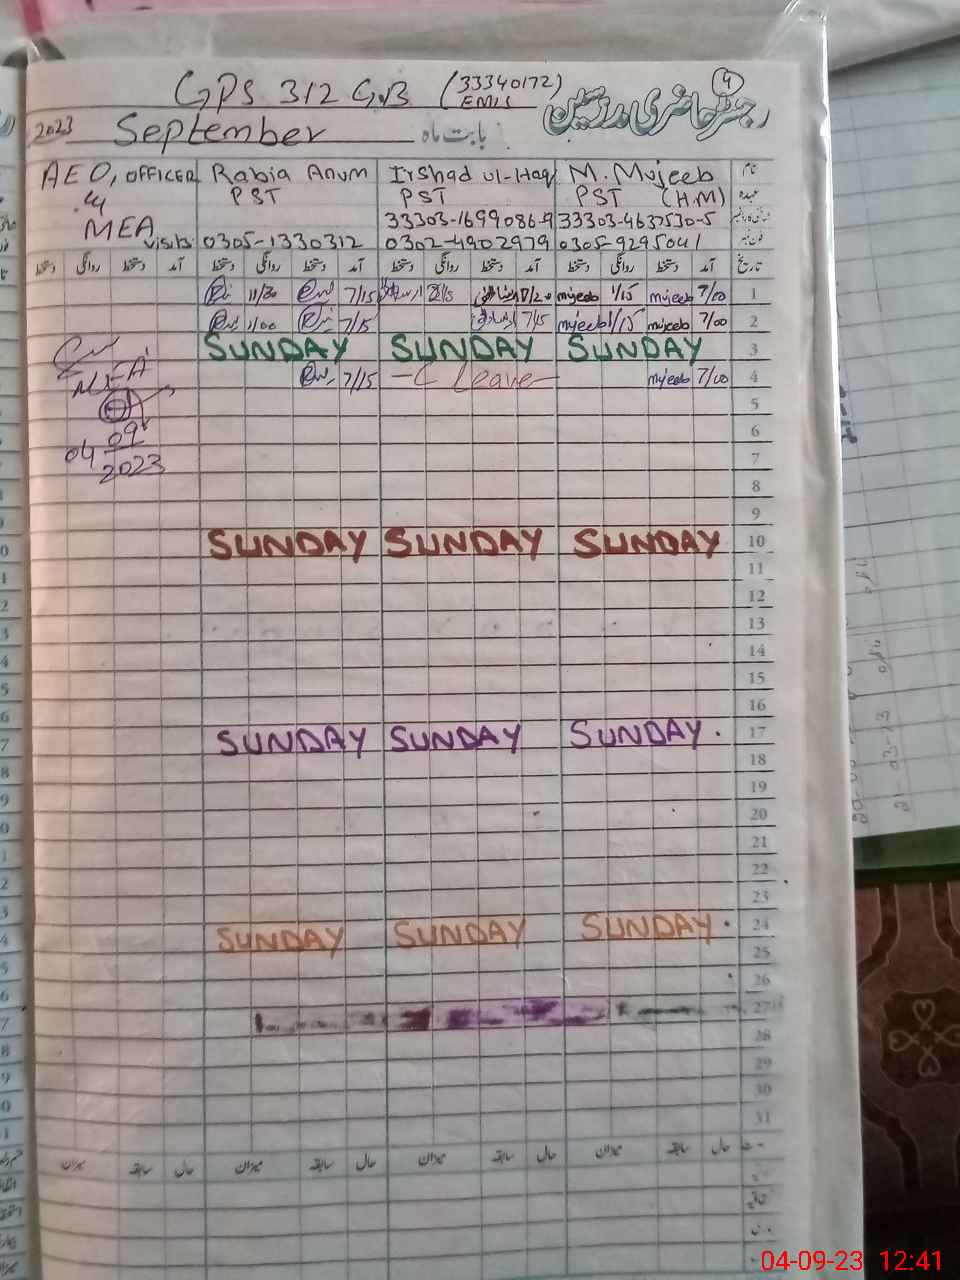 GPS 312 G.B (33340172) 4
EMIS
رجسٹر حاضری مدرسین
2023 September بابت ماہ
AEO, OFFICER Rabia Anum Irshad ul-Haq M. Mujeeb نام
PST PST PST (H.M) عہدہ
MEA 33303-1699086-9 33303-4637530-5
visits 0305-1330312 0302-4902979 0305-9295041 فون نمبر
دستخط روانگی دستخط آمد دستخط روانگی دستخط آمد دستخط روانگی دستخط آمد دستخط روانگی دستخط آمد تاریخ
11/30 7/15 mujeeb 1/15 mujeeb 7/00 1
1/00 7/15 7/15 mujeeb 1/15 mujeeb 7/00 2
SUNDAY SUNDAY SUNDAY 3
MEA 7/15 - C Leave - mujeeb 7/00 4
5
04 09 6
2023 7
8
9
SUNDAY SUNDAY SUNDAY 10
11
12
13
14
15
16
SUNDAY SUNDAY SUNDAY 17
18
19
20
21
22
23
SUNDAY SUNDAY SUNDAY 24
25
26
27
28
29
30
31
میزان سابقہ حال میزان سابقہ حال میزان سابقہ حال میزان سابقہ حال
04-09-23 12:41